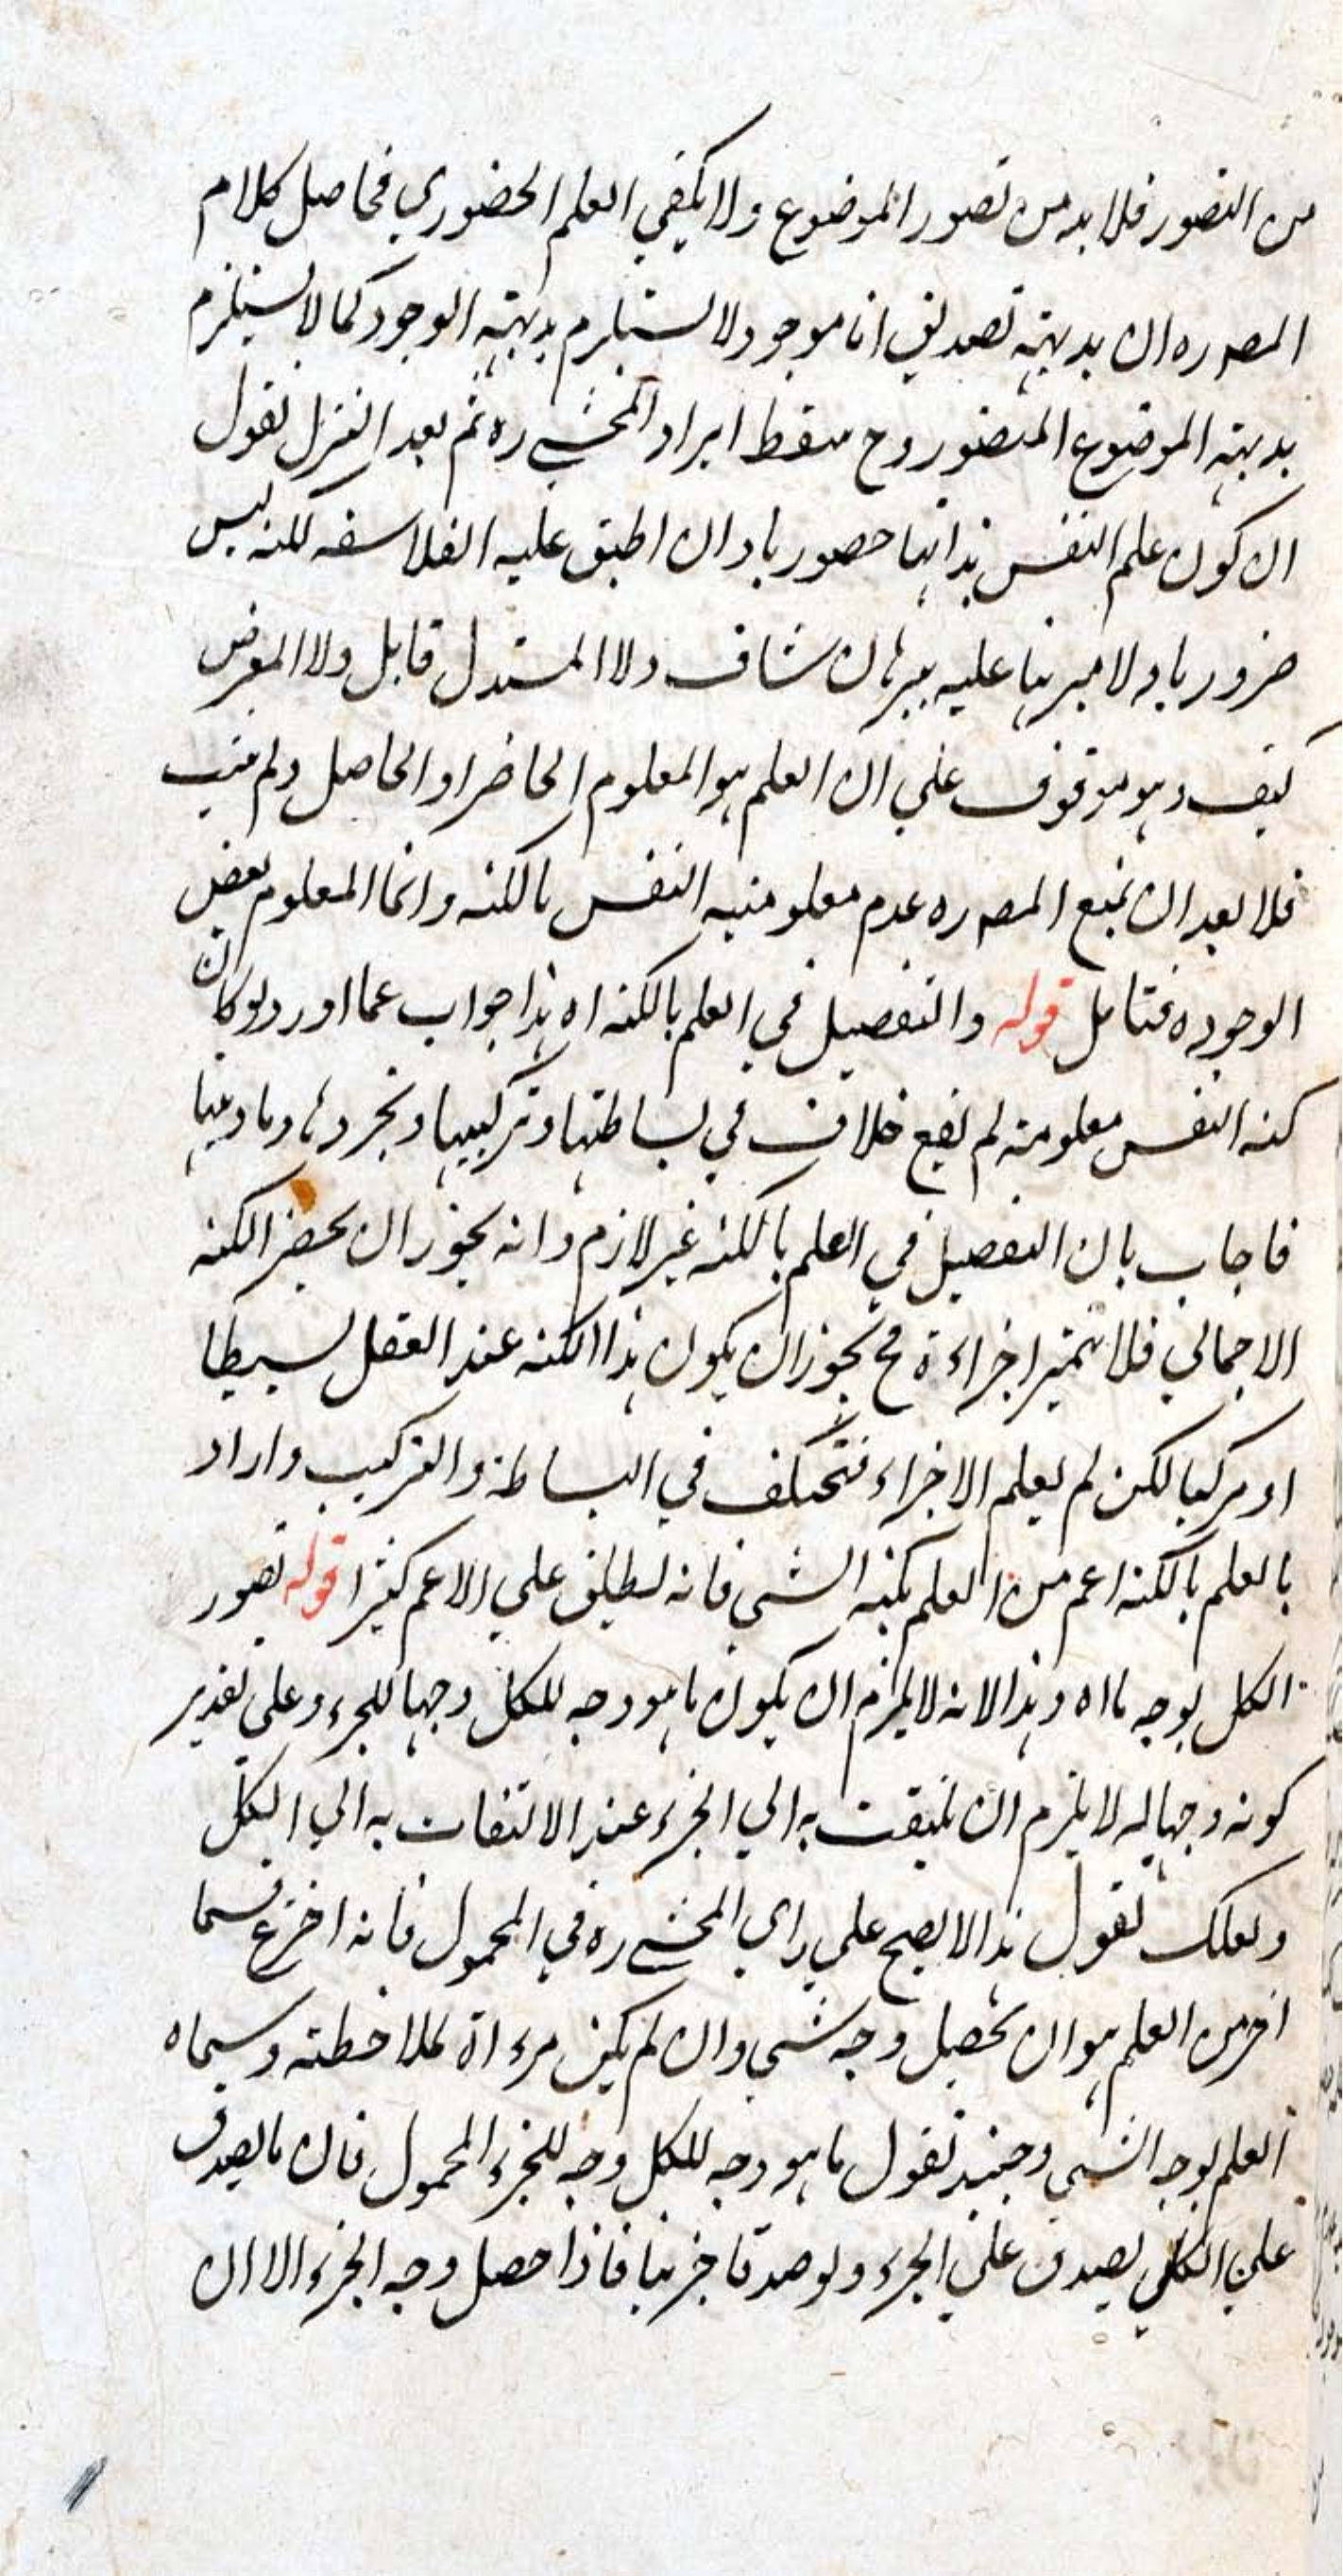 من التصور فلا بد من تصور الموضوع ولا يكفي العلم الحضوري فحاصل كلام
المصره ان بديهته تصديق انا موجود لا يستلزم بديهة الوجود كما لا يستلزم
بديهته الموضوع المتصور وح سقط ايراد المحشي ره ثم بعد التنزل نقول
ان كون علم النفس بذاتها حضوريا وان اطبق عليه الفلاسفه لكنه ليس
ضروريا ولا مبرهنا عليه ببرهان شاف ولا المستدل قايل ولا المعرض
كيف وهو موقوف علي ان العلم هو المعلوم الحاضر او الحاصل ولم يثبت
فلا بعد ان يمنع المصره عدم معلومية النفس بالكنه وانما المعلوم بعض
الوجوده فتامل قوله والتفصيل في العلم بالكنه اه هذا جواب عما اورد لو كان
كنه النفس معلومة لم يقع خلاف في بساطتها وتركيبها وتجردها وماديتها
فاجاب بان التفصيل في العلم بالكنه غير لازم وانه يجوز ان يحضر الكنه
الاجمالي فلا تميز اجزاءه فح يجوز ان يكون هذا الكنه عند العقل بسيطا
او مركبا لكن لم يعلم الاجزاء فتختلف في البساطة والتركيب واراد
بالعلم بالكنه اعم من العلم بكنه الشي فانه يطلق علي الاعم كثيرا قوله تصور
الكل بوجه ما اه وهذا لانه لا يلزم ان يكون ما هو وجه للكل وجها للجزء وعلي تقدير
كونه وجها له لا يلزم ان يلتفت به الي الجزء عند الالتفات به الي الكل
ولعلك تقول هذا لا يصح علي راي المحشي ره في المحمول فانه اخترع قسما
اخر من العلم هو ان يحصل وجه شي وان لم يكن مرءاة لملاحظته وسماه
العلم بوجه الشي وحينئذ نقول ما هو وجه للكل وجه للجزء المحمول فان ما يصدق
علي الكل يصدق علي الجزء ولو صدقا جزئيا فاذا حصل وجه الجزء الا ان